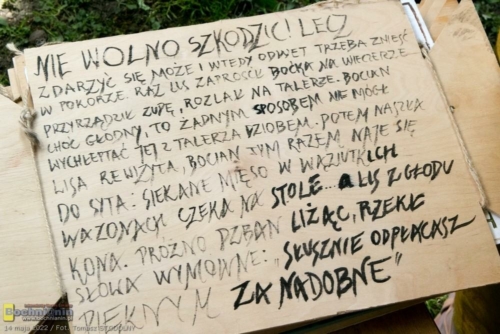 NIE WOLNO SZKODZIĆ! LECZ
ZDARZYĆ SIĘ MOŻE I WTEDY ODWET TRZEBA ZNIEŚĆ
W POKORZE. RAZ LIS ZAPROSIŁ BOĆKA NA WIECZERZĘ
PRZYRZĄDZIŁ ZUPĘ, ROZLAŁ NA TALERZE. BOCIAN
CHOĆ GŁODNY, TO ŻADNYM SPOSOBEM NIE MÓGŁ
WYCHŁEPTAĆ JEJ Z TALERZA DZIOBEM. POTEM NASZŁA
LISA REWIZYTA, BOCIAN TYM RAZEM NAJE SIĘ
DO SYTA. SIEKANE MIĘSO W WĄZIUTKICH
WAZONACH CZEKA NA STOLE... A LIS Z GŁODU
KONA. PRÓŻNO DZBAN LIŻĄC, RZEKŁ
SŁOWA WYMOWNE: "SŁUSZNIE ODPŁACASZ
PIĘKNYM ZA NADOBNE"
Bochnianin
14 maja 2022 / Fot.